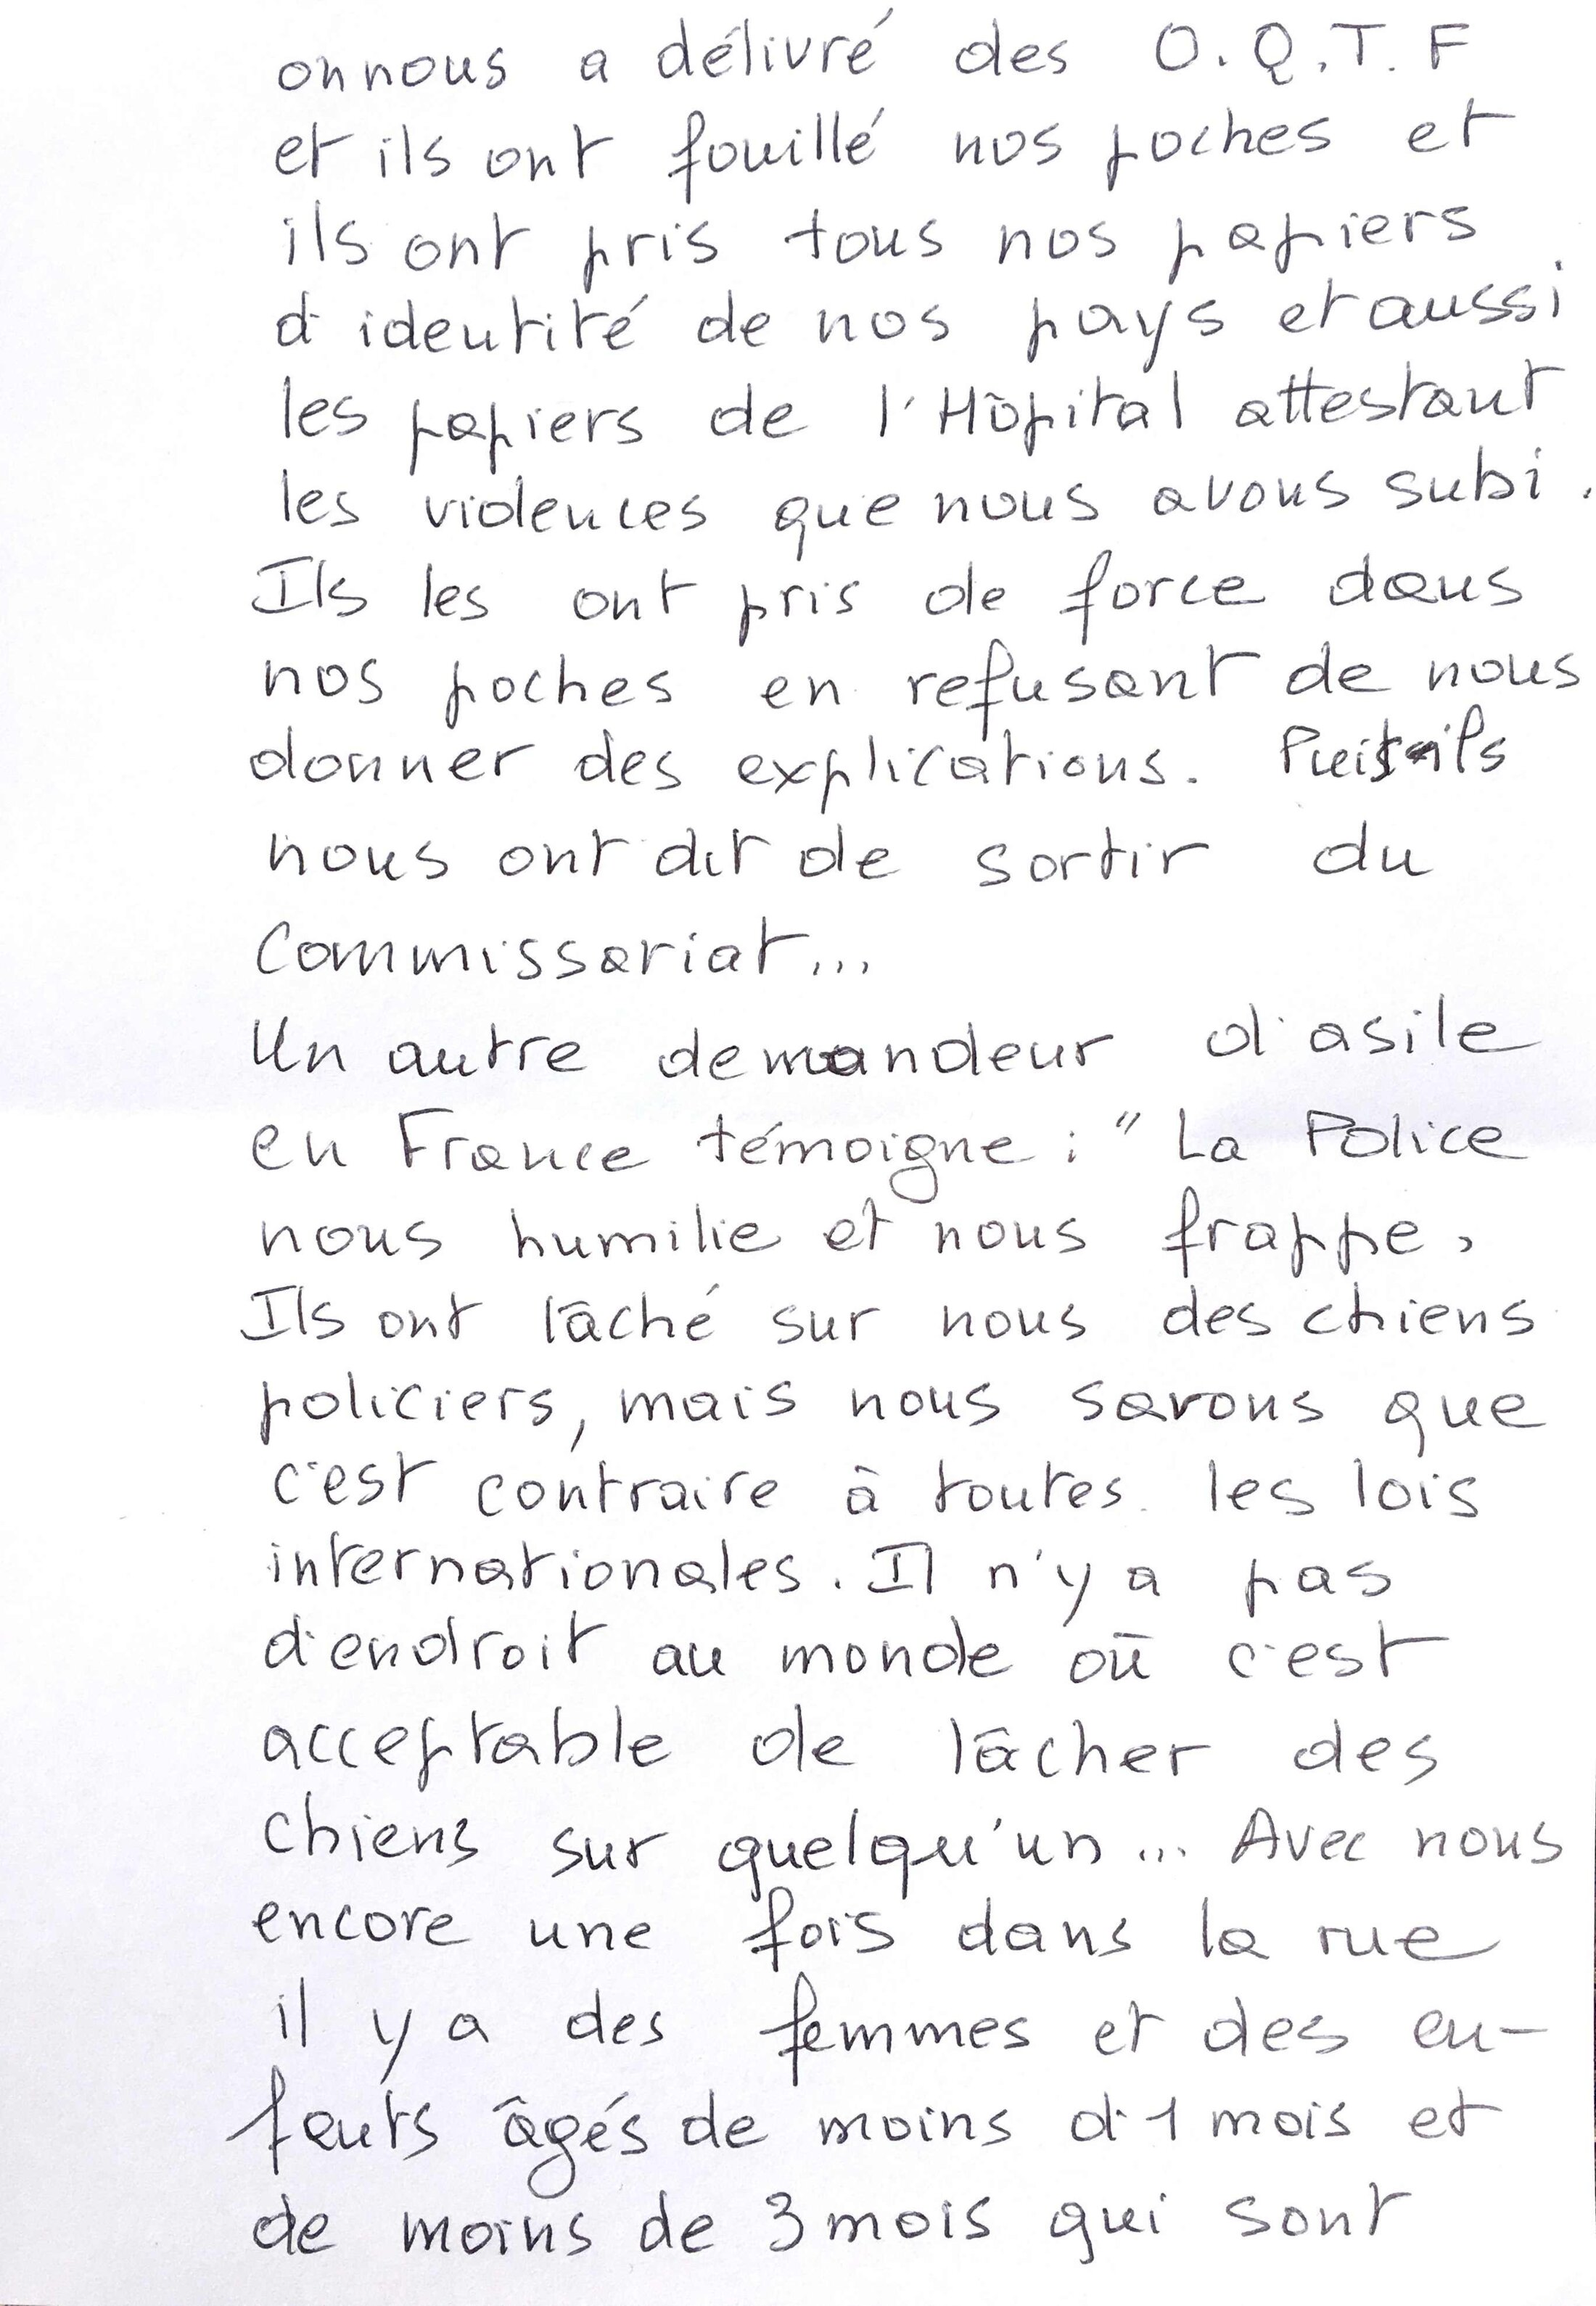 on nous a délivré des O.Q.T.F
et ils ont fouillé nos poches et
ils ont pris tous nos papiers
d'identité de nos pays et aussi
les papiers de l'Hôpital attestant
les violences que nous avons subi.
Ils les ont pris de force dans
nos poches en refusant de nous
donner des explications. Puis ils
nous ont dit de sortir du
Commissariat...
Un autre demandeur d'asile
en France témoigne : " La Police
nous humilie et nous frappe,
Ils ont lâché sur nous des chiens
policiers, mais nous savons que
c'est contraire à toutes les lois
internationales. Il n'y a pas
d'endroit au monde où c'est
acceptable de lâcher des
chiens sur quelqu'un... Avec nous
encore une fois dans la rue
il y a des femmes et des en-
fants âgés de moins d'1 mois et
de moins de 3 mois qui sont